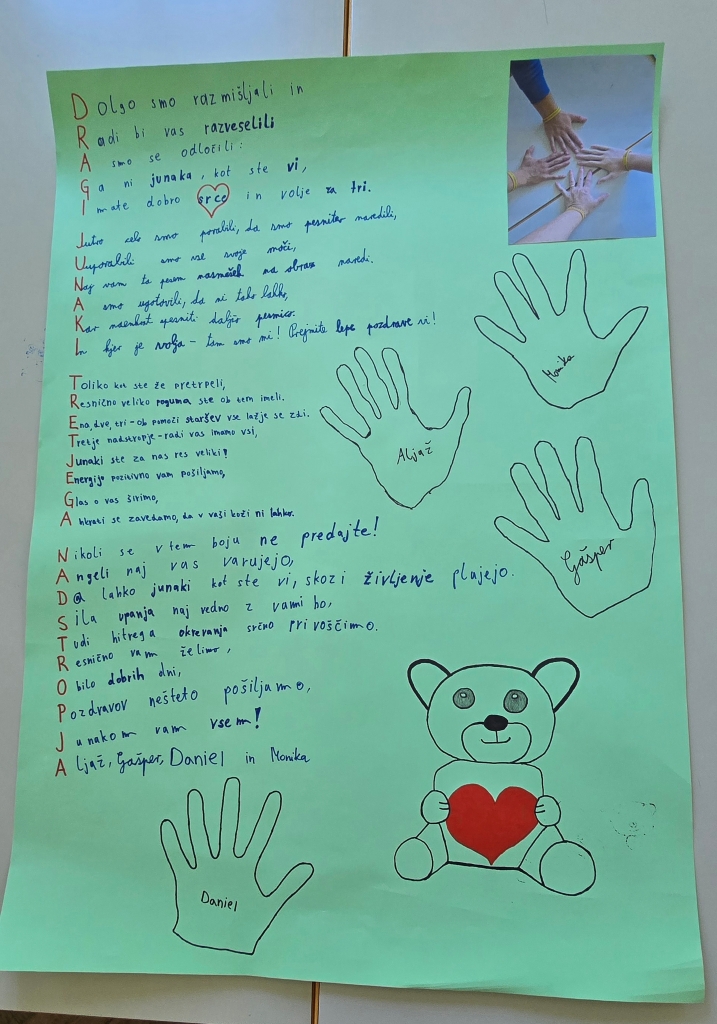 Dolgo smo razmišljali in
Radi bi vas razveselili
A smo se odločili:
Ga ni junaka, kot ste vi,
Imate dobro srce in volje za tri.
Jutro celo smo porabili, da smo pesnitev naredili,
Uuporabili smo vse svoje moči,
Naj vam ta pesem nasmešek na obraz naredi.
A smo ugotovili, da ni tako lahko,
Kar naenkrat spesniti daljšo pesmico.
In kjer je volja - tam smo mi! Prejmite lepe pozdrave vi!
Toliko kot ste že pretrpeli,
Resnično veliko poguma ste ob tem imeli.
Ena, dve, tri - ob pomoči staršev vse lažje se zdi.
Tretje nadstropje - radi vas imamo vsi,
Junaki ste za nas res veliki!
Energijo pozitivno vam pošiljamo,
Glas o vas širimo,
A hkrati se zavedamo, da v vaši koži ni lahko.
Nikoli se v tem boju ne predajte!
Angeli naj vas varujejo,
Da lahko junaki kot ste vi, skozi življenje plujejo.
Sila upanja naj vedno z vami bo,
Tudi hitrega okrevanja srčno privoščimo.
Resnično vam želimo,
Obilo dobrih dni,
Pozdravov nešteto pošiljamo,
Junakom vam vsem!
Aljaž, Gašper, Daniel in Monika
Monika
Aljaž
Gašper
Daniel